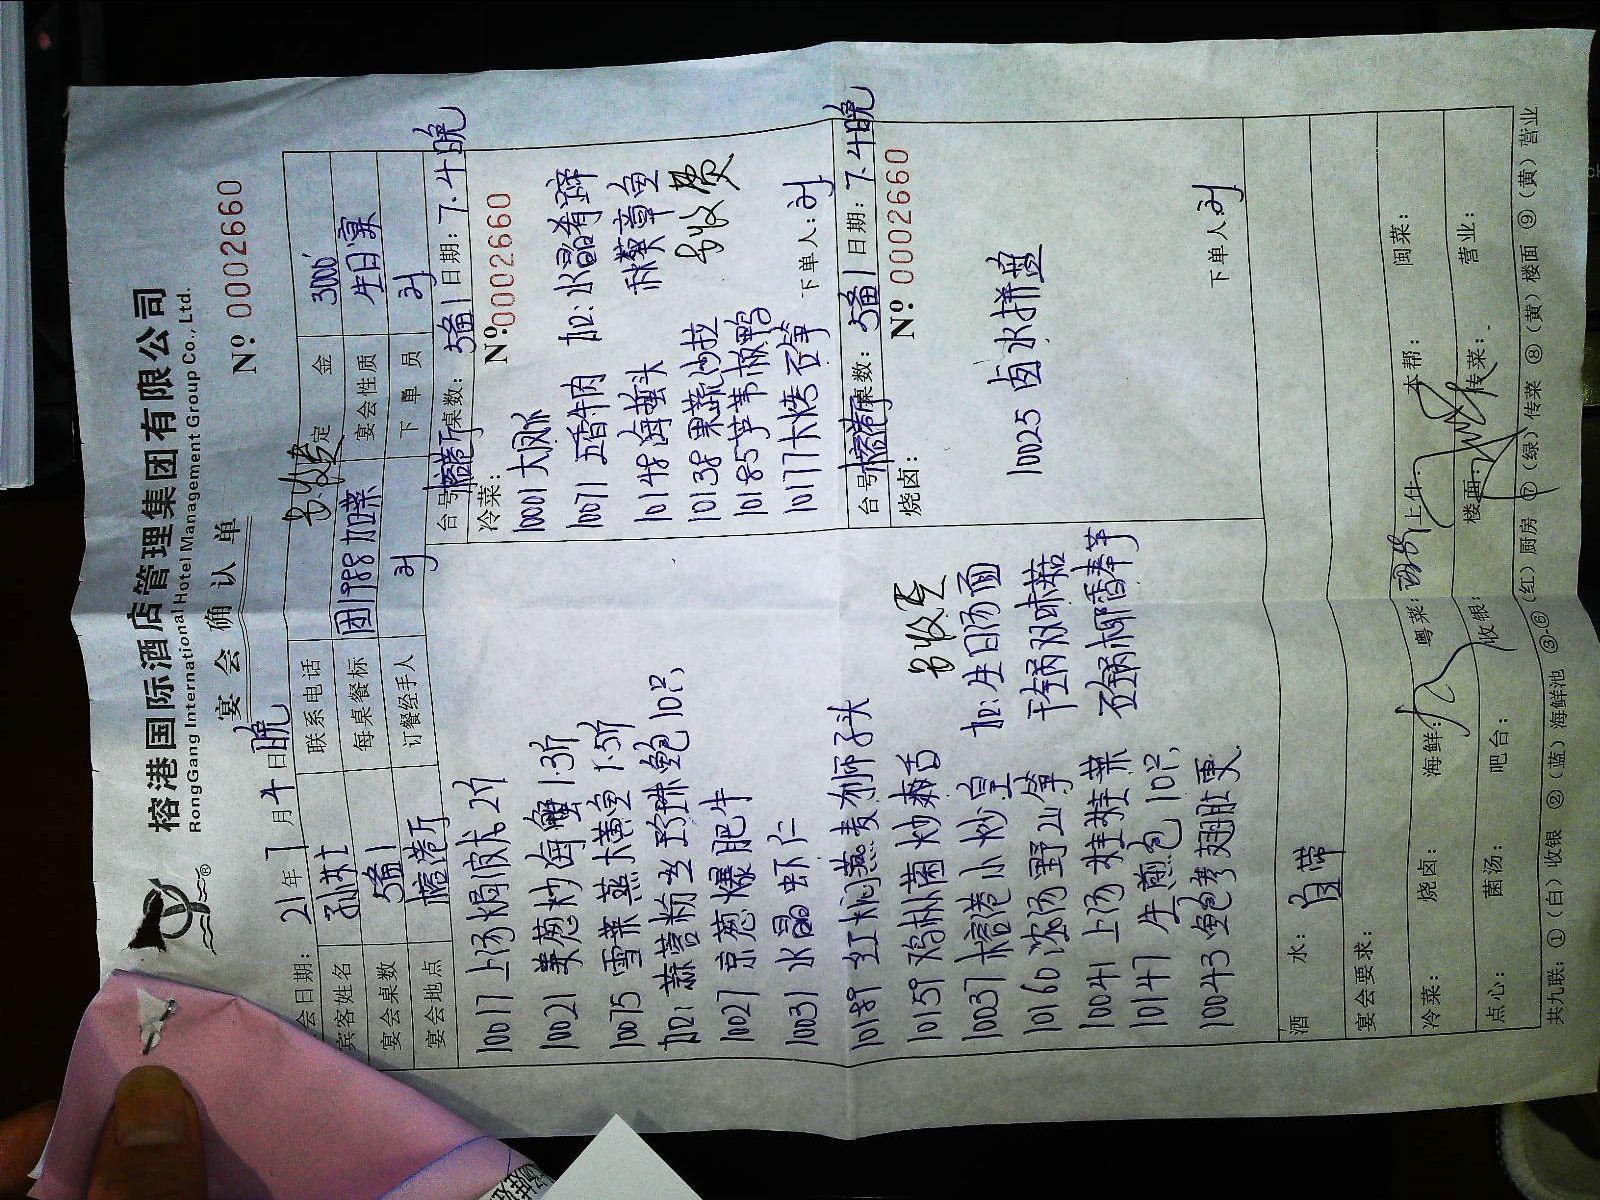 榕港国际酒店管理集团有限公司
RongGang International Hotel Management Group Co., Ltd.
宴会确认单
Nº 0002660
会日期: 21年7月4日晚
宾客姓名 联系电话 定金 3000
宴会桌数 5备1 每桌餐标 团1988加菜 宴会性质 生日宴
宴会地点 榕港厅 订餐经手人 下单员
10017 上汤焗波龙2斤
10021 姜葱炒海蟹1.3斤
10075 雪菜蒸大黄鱼1.5斤
加: 蒜蓉粉丝珍珠鲍10只
10027 京葱爆肥牛
10031 水晶虾仁
10189 红焖燕麦狮子头
10159 鸡枞菌炒
10037 榕港小炒皇
10160 浓汤野山笋
10041 上汤娃娃菜
10147 生煎包10只
10043 鲍参翅肚羹
另收费
加: 生日汤面
干锅双味菇
石锅椰香芋
台号: 榕港厅 桌数: 5备1 日期: 7.4晚
冷菜:
Nº 0002660
10001 大
10071 五香牛肉
10148 海蜇头
10138 果蔬沙拉
10185 芦苇椒鸭
10177 大烤石笋
加: 水晶肴蹄
秋葵章鱼
另收费
下单人:
台号: 榕港厅 桌数: 5备1 日期: 7.4晚
烧卤:
Nº 0002660
10025 卤水拼盘
下单人:
酒水: 自带
宴会要求:
冷菜: 烧卤: 海鲜: 粤菜: 上什: 本帮: 闽菜:
点心: 菌汤: 吧台: 收银: 楼面: 传菜: 营业:
共九联: ①(白)收银 ②(蓝)海鲜池 ③-⑥(红)厨房 ⑦(绿)传菜 ⑧(黄)楼面 ⑨(黄)营业